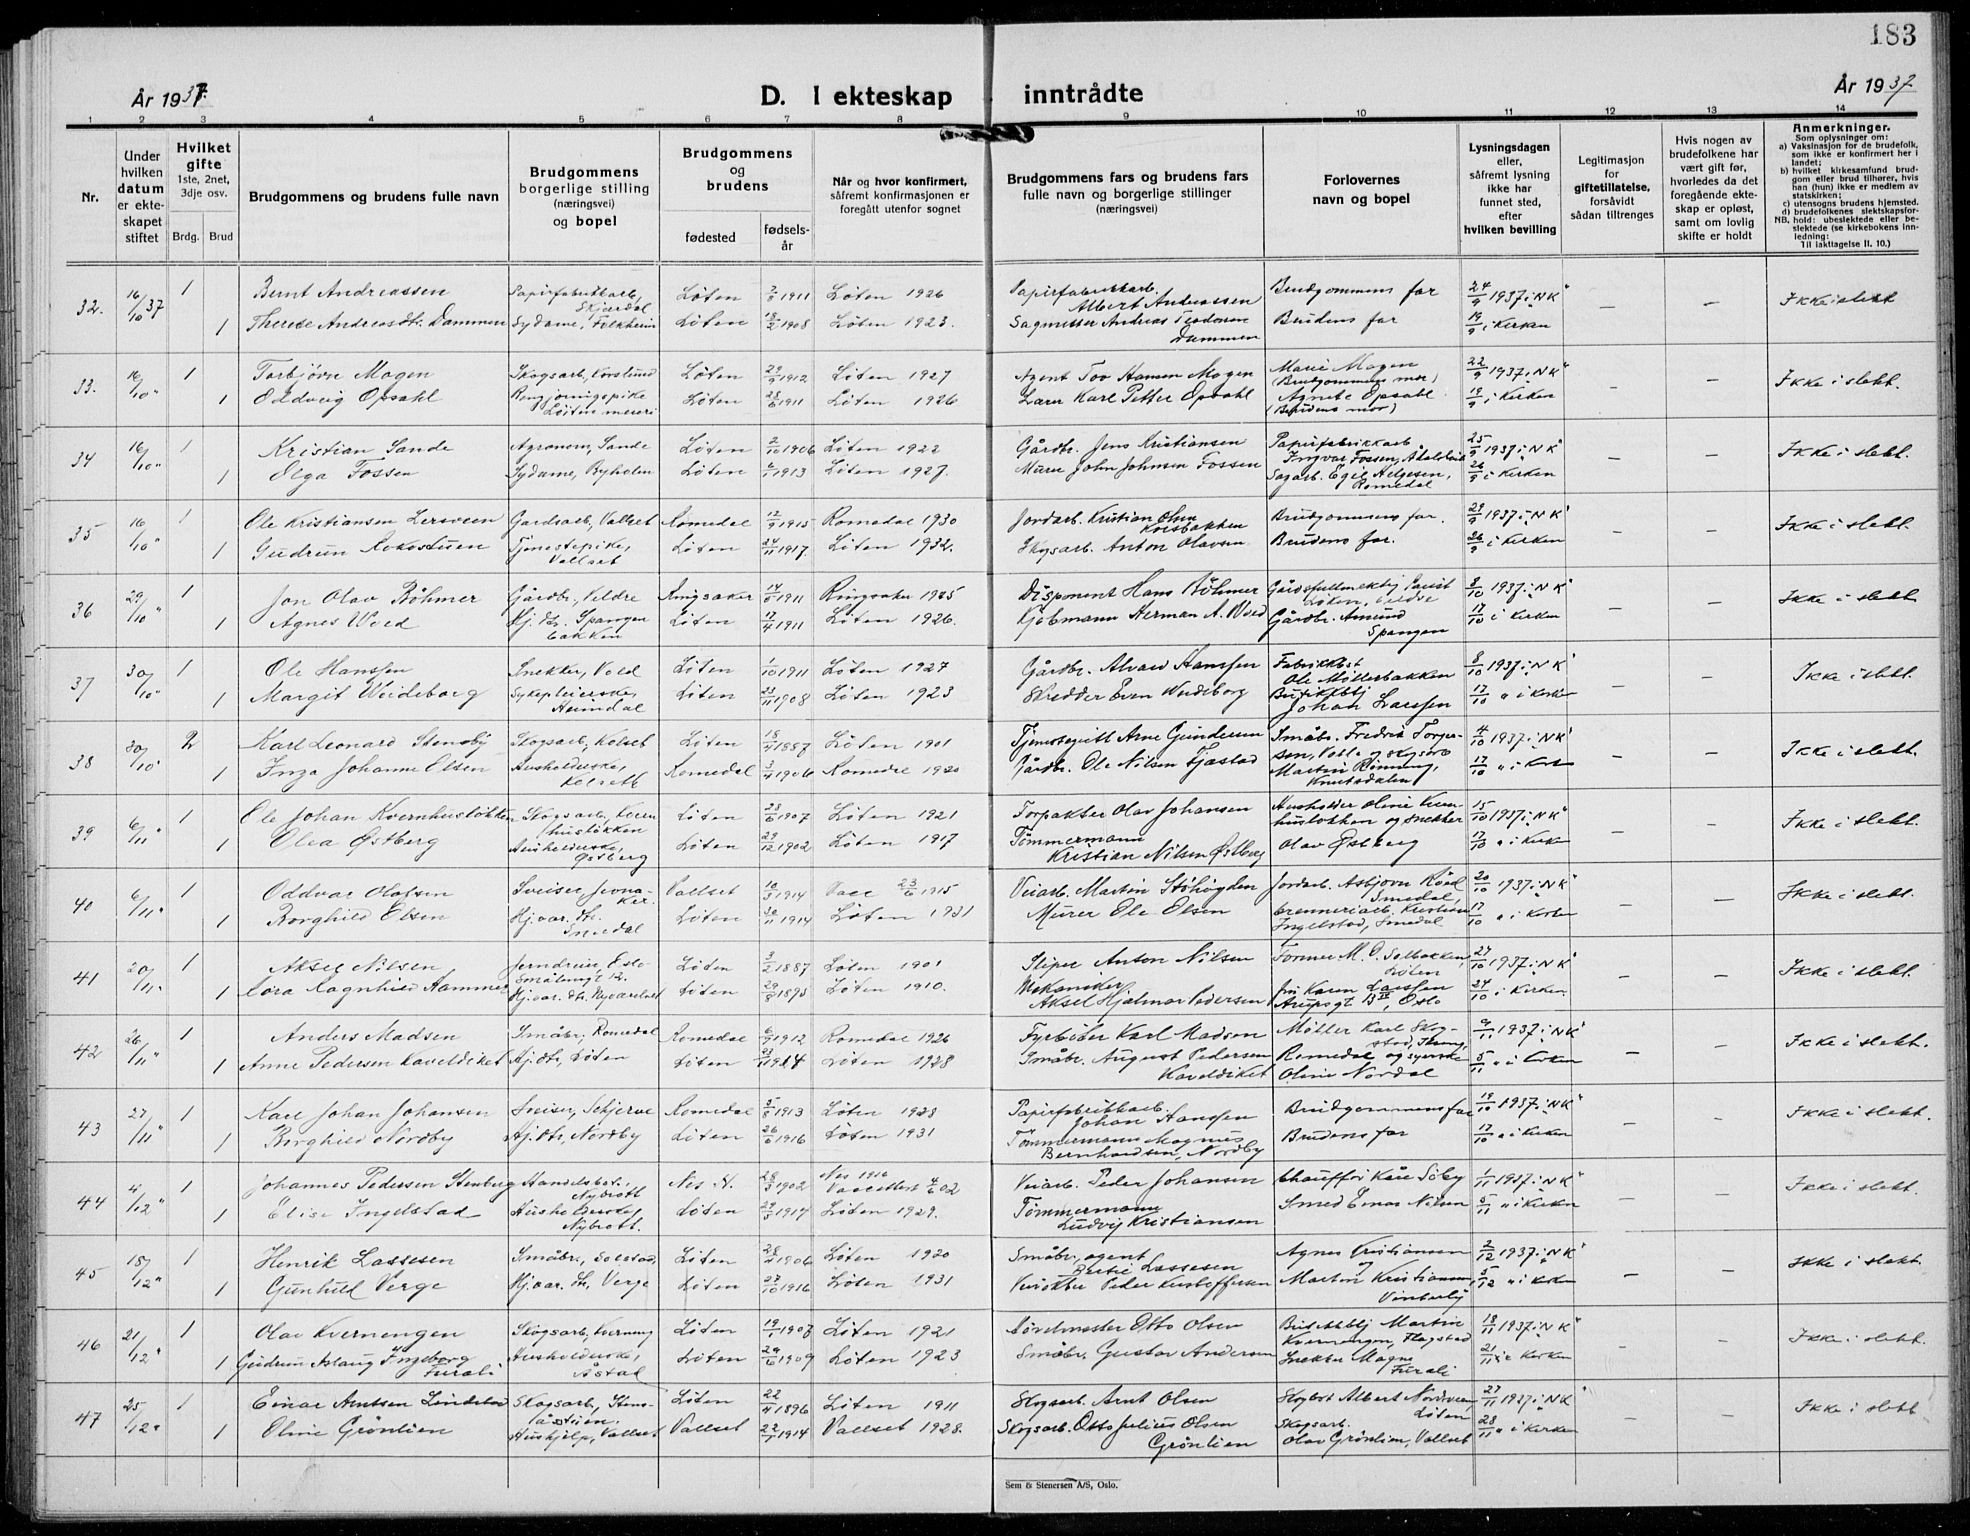 183
År 1937.
D. I ekteskap inntrådte
År 1937
1 2 3 4 5 6 7 8 9 10 11 12 13 14
Nr.
Under hvilken datum er ekteskapet stiftet
Hvilket gifte
1ste, 2net, 3dje osv.
Brdg. Brud
Brudgommens og brudens fulle navn
Brudgommens borgerlige stilling (næringsvei) og bopel
Brudgommens og brudens
fødested
fødselsår
Når og hvor konfirmert, såfremt konfirmasjonen er foregått utenfor sognet
Brudgommens fars og brudens fars fulle navn og borgerlige stillinger (næringsvei)
Forlovernes navn og bopel
Lysningsdagen eller, såfremt lysning ikke har funnet sted, efter hvilken bevilling
Legitimasjon for giftetillatelse, forsåvidt sådan tiltrenges
Hvis nogen av brudefolkene har vært gift før, hvorledes da det foregående ekteskap er opløst, samt om lovlig skifte er holdt
Anmerkninger.
Som oplysninger om:
a) Vaksinasjon for de brudefolk, som ikke er konfirmert her i landet;
b) hvilket kirkesamfund brudgom eller brud tilhører, hvis han (hun) ikke er medlem av statskirken;
c) utensogns brudens hjemsted.
d) brudefolkenes slektskapsforhold: ubeslektede eller beslektede (se kirkebokens innledning:
NB. Til iakttagelse II. 10.)
32. 16/10 37 1 Bernt Andreassen Papirfabrikkarb., Skjærdal Løten 1911 Løten 1926 Papirfabrikkarb. Albert Andreassen Brudgommens far 24/9 1937 i "N K" — — Ikke i slekt
1 Therese Andreasdtr. Dammen Sydame, Løten 1908 Løten 1923. Sagmester Andreas Teodorsen Dammen Brudens far 19/9 i kirken
33. 16/10 " 1 Torbjørn Mogen Skogsarb., Løten 29/9 1912 Løten 1927 Agent Tov Hansen Mogen Marie Mogen (Brudgommens mor) 22/9 1937 i "N K" — — Ikke i slekt.
1 Oddveig Opsahl Rengjøringspike Løiten meieri Løten 1911 Løten 1926 Lærer Karl Petter Opsahl Agnete Opsahl (Brudens mor) 19/9 i kirken
34 16/10 " 1 Kristian Sande Agronom, Sande Løten 2/10 1906 Løten 1922 Gårdbr. Jens Kristiansen Papirfabrikkarb Ingvar Fossen, 25/9 1937 i "N K" — — Ikke i slekt.
1 Olga Fossen Sydame, Byholen Løten 1913 Løten 1927. Murer John Johnsen Fossen Sagarb. Egil Helgesen, Romedal 26/9 i kirken
35 16/10 " 1 Ole Kristiansen Lersveen Gardsarb, Vallset Romedal 12/9 1915 Romedal 1930 Jordarb. Kristian Olsen Brudgommens far. 29/9 1937 i "N K" — — Ikke i slekt.
1 Gudrun Rokostuen Tjenestepike, Vallset Løten 24/11 1917 Løten 1932. Skogsarb. Anton Olavsen Brudens far. 26/9 i kirken
36 29/10 " 1 Jon Olav Bøhmer Gårdbr., Veldre Ringsaker 1911 Ringsaker 1925 Disponent Hans Bøhmer Gårdsfullmektig Løken, Veldre 8/10 1937 i "N K" — — Ikke i slekt.
1 Agnes Wold Hj. dtr. Spangenbakken Løten 17/4 1911 Løten 1926. Kjøbmann Herman A. Wold Gårdbr. Amund Spangen 17/10 i kirken
37 30/10 " 1 Ole Hanssen Snekker, Vold Løten 1/10 1911 Løten 1927 Gårdbr. Alvard Hanssen Fabrikkbest Ole Møllerbakken 8/10 1937 i "N K" — — Ikke i slekt.
1 Margit Weideborg Sykepleierske, Heimdal Løten 23/11 1908 Løten 1923 Skredder Even Weideborg Butikkbtj Johan Larssen 17/10 " i kirken
38 30/10 " 2 Karl Leonard Stensby Skogsarb, Kolset Løten 18/9 1887 Løten 1901 Tjenestegutt Arne Gundersen Småbr. Fredrik Torgersen, 4/10 1937 i "N K" — — Ikke i slekt.
1 Inga Johanne Olsen Husholderske, Kolsett Romedal 1906 Romedal 1920 Gårdbr. Ole Nilsen Fjæstad Martin Binning, Knutsdalen 17/10 " i kirken
39 6/11 " 1 Ole Johan Kvernhusløkken Skogsarb, Kvernhusløkken Løten 1907 Løten 1921 Torpakter Olav Johansen Husholder Oline Kvernhusløkken og snekker 15/10 1937 i "N K" — — Ikke i slekt.
1 Olea Østberg Husholderske, Østberg Løten 29/12 1902 Løten 1917 Tømmermann Kristian Nilsen Østberg Olav Østberg 17/10 " i kirken
40 6/11 " 1 Oddvar Olafsen Sveiser, Vallset 1914 Vall. 23/6 1915 Veiarb. Martin Jordarb. Asbjørn Røed Smedal, 20/10 1937 i "N K" — — Ikke i slekt.
1 Borghild Olsen Hj.vær. dtr. Smedal Løten 1914 Løten 1931 Murer Ole Olsen brenneriarb. Kristian Ingelstad, Smedal 17/10 " i kirken
41 20/11 " 1 Aksel Nilsen Jerndreier, Oslo Løten 3/2 1887 Løten 1901 Sliper Anton Nilsen Former M. O. Solbakken, Løten 27/10 1937 i "N K" — — Ikke i slekt.
1 Cora Ragnhild Hammer Hj.vær. dtr. Løten 1895 Løten 1910. Mekaniker Aksel Hjalmar Pedersen fru Karen Larssen Arupsgt, Oslo 27/10 i kirken.
42 26/11 " 1 Anders Madsen Småbr, Romedal Romedal 6/9 1912 Romedal 1926 Fyrbøter Karl Madsen Møller Karl Skogstad, 9/11 1937 i "N K" — — Ikke i slekt.
1 Anne Pedersen Kaveldiket Hj.dtr, Løten Løten 1914 Løten 1928 Småbr. August Pedersen Kaveldiket Romedal og syerske Oline Nordal 5/11 " i kirken
43 27/11 " 1 Karl Johan Johansen Sveiser, Skjerve Romedal 1913 Løten 1928 Papirfabrikkarb. Johan Hanssen Brudgommens far 19/10 1937 i "N K" — — Ikke i slekt.
1 Borghild Nordby Hj.dtr, Nordby Løten 26/6 1916 Løten 1931 Tømmermann Magnus Bernhardsen, Nordby Brudens far 17/10 " i kirken
44 4/12 " 1 Johannes Pedersen Stenberg Handelsbest., Nybrott Nes H. 1902 Nes 1916 Veiarb. Peder Johansen Chauffør Kåre Söby 1/11 1937 i "N K" — — Ikke i slekt.
1 Elise Ingelstad Husholderske, Nybrott. Løten 1914 Løten 1929. Tømmermann Ludvig Kristiansen Smed Einar Nilsen 5/11 " i kirken
45 18/12 " 1 Henrik Lassesen Småbr., Solstad Løten 1906 Løten 1920 Småbr., agent Lassesen Agnes Kristiansen og 2/12 1937 i "N K" — — Ikke i slekt.
1 Gunhild Verge Hj.vær. dtr, Verge Løten 27/10 1916 Løten 1931 Peder Kristoffersen Martin Kristiansen, Vinterby 5/12 " i kirken
46 21/12 " 1 Olav Kverningen Skogsarb, Kverning Løten 1907 Løten 1921 Otto Olsen Butikkbtj Martin Kverningen, Flagstad 18/11 1937 i "N K" — — Ikke i slekt.
1 Gudrun Aslaug Ingeborg Furali Husholderske, Åstad Løten 29/6 1909 Løten 1923 Småbr. Gustav Andersen Snekker Magne Furali 21/11 i kirken
47 25/12 " 1 Einar Arntsen Lindstad Skogsarb, Løten 22/4 1896 Løten 1911 Skogsarb. Arnt Olsen Albert Nordveen Løten 27/11 1937 i "N K" — — Ikke i slekt
1 Oline Grönlien Hushjelp, Vallset Vallset 1914 Vallset 1928. Skogsarb. Otto Julius Olsen Grönlien Skogsarb. Olav Grönlien, Vallset 28/11 " i kirken
Sem & Stenersen A/S, Oslo.